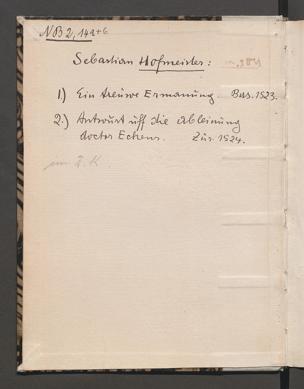 NB 2, 141+6
Sebastian Hofmeister:
1) Ein treuwe Ermanung Bas. 1523.
2.) Antwurt uff die ableinung
doctor Eckens. Zür. 1524.